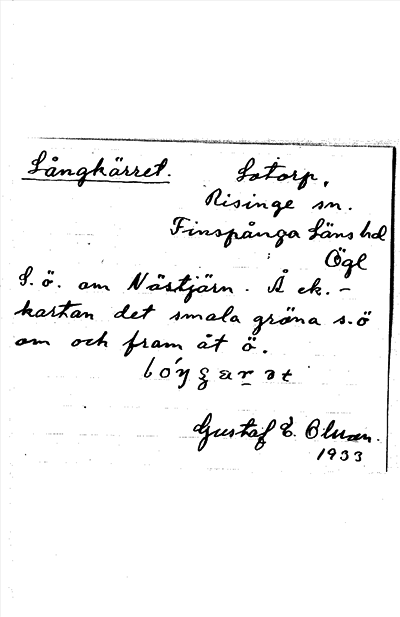 Långkärret. Lotorp,
Risinge sn.
Finspånga Läns hd
Ögl
S. ö. om Nästjärn. Å ek. -
kartan det smala gröna s.ö
om och fram åt ö.
Gustaf E. Olsson.
1933